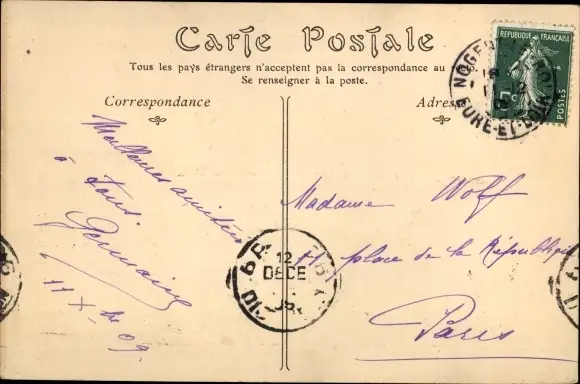 Carte Postale
Tous les pays étrangers n'acceptent pas la correspondance au
Se renseigner à la poste.
Correspondance
Adres
RÉPUBLIQUE FRANÇAISE
5c
POSTES
NOGENT
EURE-ET-LOIR
Meilleures amitiés
à tous.
Germaine
11 Xbre 09.
Madame Wolff
11 place de la République
Paris
12
DECE